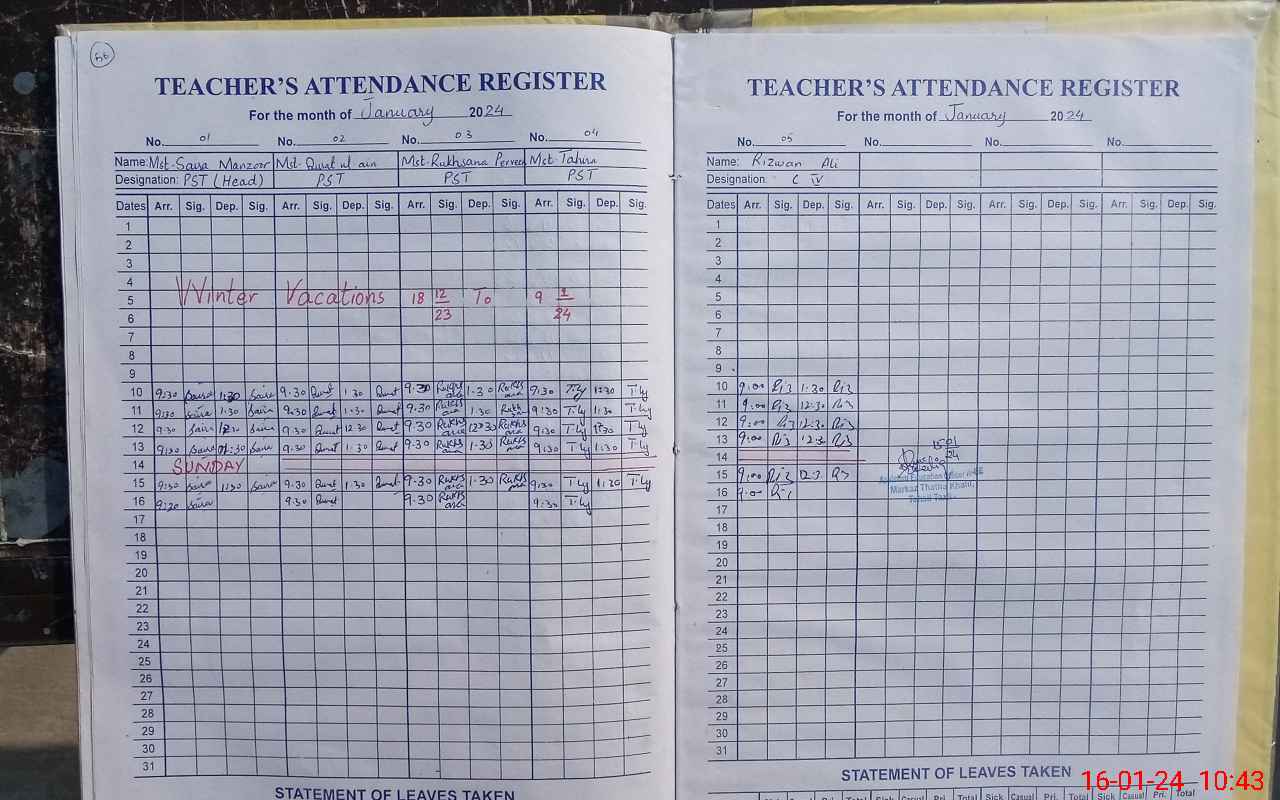 56
TEACHER'S ATTENDANCE REGISTER
For the month of January 2024
No. 01 No. 02 No. 03 No. 04
Name: Mst. Saira Manzoor Mst. Qurat ul ain Mst. Rukhsana Perveen Mst. Tahira
Designation: PST (Head) PST PST PST
Dates Arr. Sig. Dep. Sig. Arr. Sig. Dep. Sig. Arr. Sig. Dep. Sig. Arr. Sig. Dep. Sig.
1
2
3
4
5 Winter Vacations 18 12/23 To 9 1/24
6
7
8
9
10 9:30 Saira 1:30 Saira 9.30 Qurat 1.30 Qurat 9.30 Rukhsana 1.30 Rukhsana 9:30 T.ly 1:30 T.ly
11 9:30 Saira 1:30 Saira 9.30 Qurat 1.30 Qurat 9.30 Rukhsana 1.30 Rukhsana 9:30 T.ly 1:30 T.ly
12 9.30 Saira 12:30 Saira 9.30 Qurat 12.30 Qurat 9.30 Rukhsana 12:30 Rukhsana 9:30 T.ly T.ly
13 9:30 Saira 1:30 Saira 9:30 Qurat 1.30 Qurat 9.30 Rukhsana 1.30 Rukhsana 9:30 T.ly 1:30 T.ly
14 SUNDAY
15 9:30 Saira 1:30 Saira 9.30 Qurat 1.30 Qurat 9.30 Rukhsana 1.30 Rukhsana 9:30 T.ly 1:30 T.ly
16 9:30 Saira 9.30 Qurat 9.30 Rukhsana 9:30 T.ly
17
18
19
20
21
22
23
24
25
26
27
28
29
30
31
STATEMENT OF LEAVES TAKEN
TEACHER'S ATTENDANCE REGISTER
For the month of January 2024
No. 05 No. No. No.
Name: Rizwan Ali
Designation: C IV
Dates Arr. Sig. Dep. Sig. Arr. Sig. Dep. Sig. Arr. Sig. Dep. Sig. Arr. Sig. Dep. Sig.
1
2
3
4
5
6
7
8
9
10 9:00 Riz 1.30 Riz
11 9:00 Riz 12:30 Riz
12 9:00 Riz 12:30 Riz
13 9:00 Riz 12:3 Riz
14
15 9:00 Riz 12:3 Riz
16 9:00 Riz
15/01/24
Assistant Education Officer
Markaz Thatha Khalil,
17
18
19
20
21
22
23
24
25
26
27
28
29
30
31
STATEMENT OF LEAVES TAKEN
Sick Casual Pri. Total Sick Casual Pri. Total Sick Casual Pri. Total
16-01-24 10:43